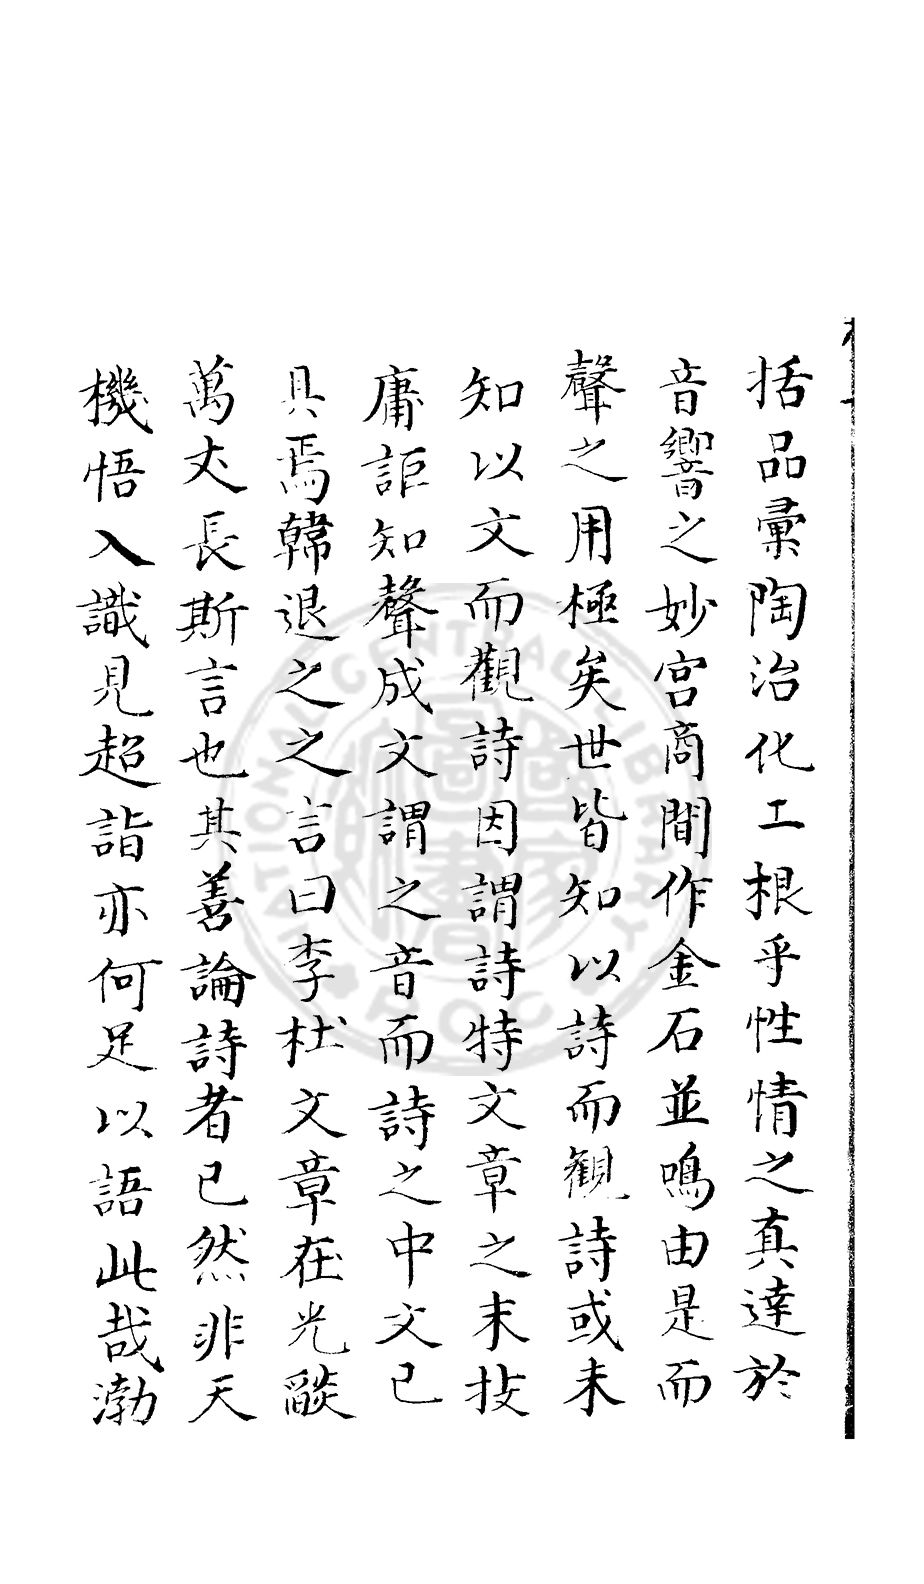 括品彙陶冶化工根乎性情之真達於
音響之妙宮商間作金石並鳴由是而
聲之用極矣世皆知以詩而觀詩或未
知以文而觀詩因謂詩特文章之末技
庸詎知聲成文謂之音而詩之中文已
具焉韓退之之言曰李杜文章在光燄
萬丈長斯言也其善論詩者已然非天
機悟入識見超詣亦何足以語此哉渤
NATIONAL CENTRAL LIBRARY
R.O.C.